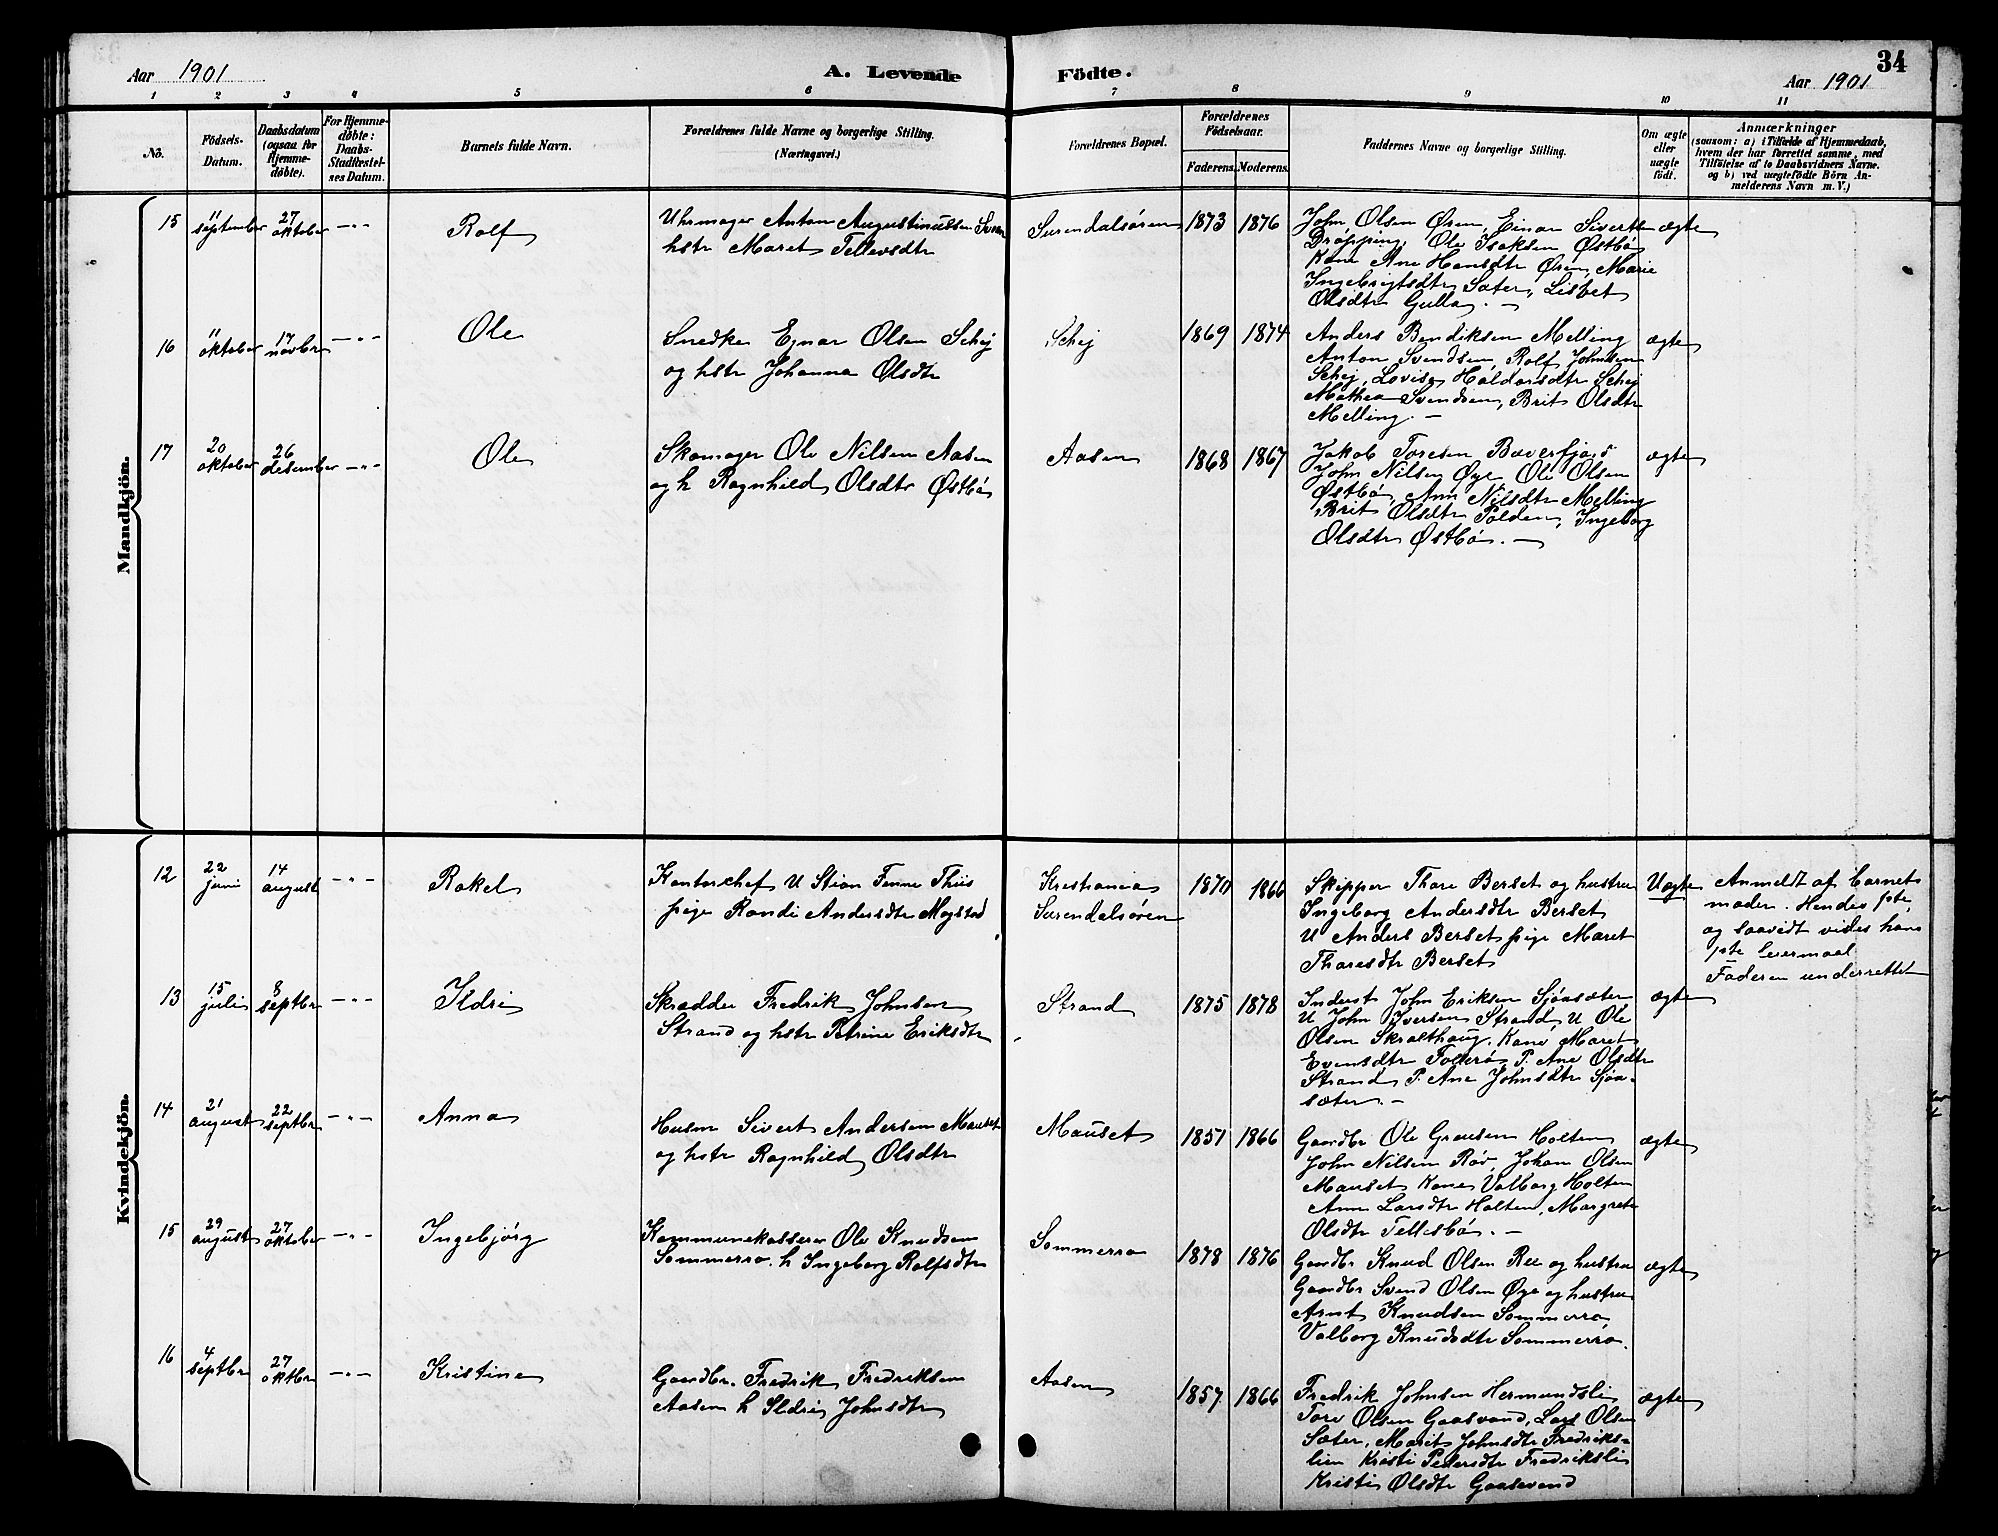 Aar 1901
A. Levende
Födte.
34
Aar 1901
1 2 3 4 5 6 7 8 9 10 11
No.
Födsels-
Datum.
Daabsdatum
(ogsaa for
Hjemme-
döbte).
For Hjemme-
döbte:
Daabs-
Stadfæstel-
ses Datum.
Barnets fulde Navn.
Forældrenes fulde Navne og borgerlige Stilling.
(Næringsvei.)
Forældrenes Bopæl.
Forældrenes
Födselsaar.
Faderens. Moderens.
Faddernes Navne og borgerlige Stilling.
Om ægte
eller
uægte
födt.
Anmærkninger
(saasom: a) i Tilfælde af Hjemmedaab,
hvem der har forrettet samme, med
Tilföielse af to Daabsvidners Navne.
og b) ved uægtefödte Börn An-
melderens Navn m. V.)
Mandkjön.
15
11
september
27
oktober
Rolf
Uhrmager Anton Augustinussen
hstr Maret Tellevsdtr
Surendalsøren
1873 1876
John Olsen Øren, Einar Sivertsen
Drøpping, Ole Isaksen Østbø
Kone Ane Hansdtr Øren, Marie
Ingebrigtsdtr Sæter, Lisbet
Olsdtr Gulla. –
ægte
16
11
oktober
17
novbr
Ole
Snedker Ejnar Olsen Schej
og hstr Johanna Olsdtr
Schej
1869 1874
Anders Bendiksen Melling
Anton Svendsen, Rolf Johnsen
Schej, Lovise Haldorsdtr Schej
Mathea Svendsen, Brit Olsdtr
Melling. –
ægte
17
20
oktober
26
desember
Ole
Skomager Ole Nilsen Aasen
og h Ragnhild Olsdtr Østbø
Aasen
1868 1867
Jakob Toresen Bæverfjord
John Nilsen Øye Ole Olsen
Østbø, Ane Nilsdtr Melling
Brit Olsdtr Polden, Ingeborg
Olsdtr Østbø. –
ægte
Kvindekjön.
12
22
juni
14
august
Rakel
Kontorchef U Stian Finne Thiis
pige Randi Andersdtr Mogstad
Kristiania
Surendalsøren
1870 1866
Skipper Thore Berset og hustru
Ingeborg Andersdtr Berset
U Anders Berset pige Maret
Thoresdtr Berset
Uægte
Anmeldt af barnets
moder. Hendes 1ste
og saavidt vides hans
1ste leiermaal
Faderen underrettet
13
15
juli
8
septbr
Ildri
Skrædder Fredrik Johnsen
Strand og hstr Petrine Eriksdtr
Strand
1875 1878
Inderst John Eriksen Sjøasæter
U John Iversen Strand, U Ole
Olsen Skralthaug. Kone Maret
Evensdtr Tollerø, P. Ane Olsdtr
Strand, P. Ane Johnsdtr Sjøa-
sæter. –
ægte
14
21
august
22
septbr
Anna
Husm Sivert Andersen Mauset
og hstr Ragnhild Olsdtr
Mauset
1857 1866
Gaardbr Ole Holten
John Nilsen Røv, Johan Olsen
Mauset Kone Valborg Holten
Ane Larsdtr Holten, Margrete
Olsdtr Tellesbø. –
ægte
15
29
august
27
oktober
Ingebjørg
Kommunekasserer Ole Knudsen
Sommerro. h Ingeborg Rolfsdtr
Sommerro
1878 1876
Gaardbr Knud Olsen Ree og hustru
Gaardbr Svend Olsen Øye og hustru
Arnt Knudsen Sommerro
Valborg Knudsdtr Sommerro.
ægte
16
4
septbr
27
oktbr
Kristine
Gaardbr. Fredrik Fredriksen
Aasen h Ildri Johnsdtr
Aasen
1857 1866
Fredrik Johnsen Hermundsli
Tore Olsen Gaasvand, Lars Olsen
Sæter, Marit Johnsdtr Fredriks-
lien Kristi Pedersdtr Fredriksli
Kristi Olsdtr Gaasvand
ægte